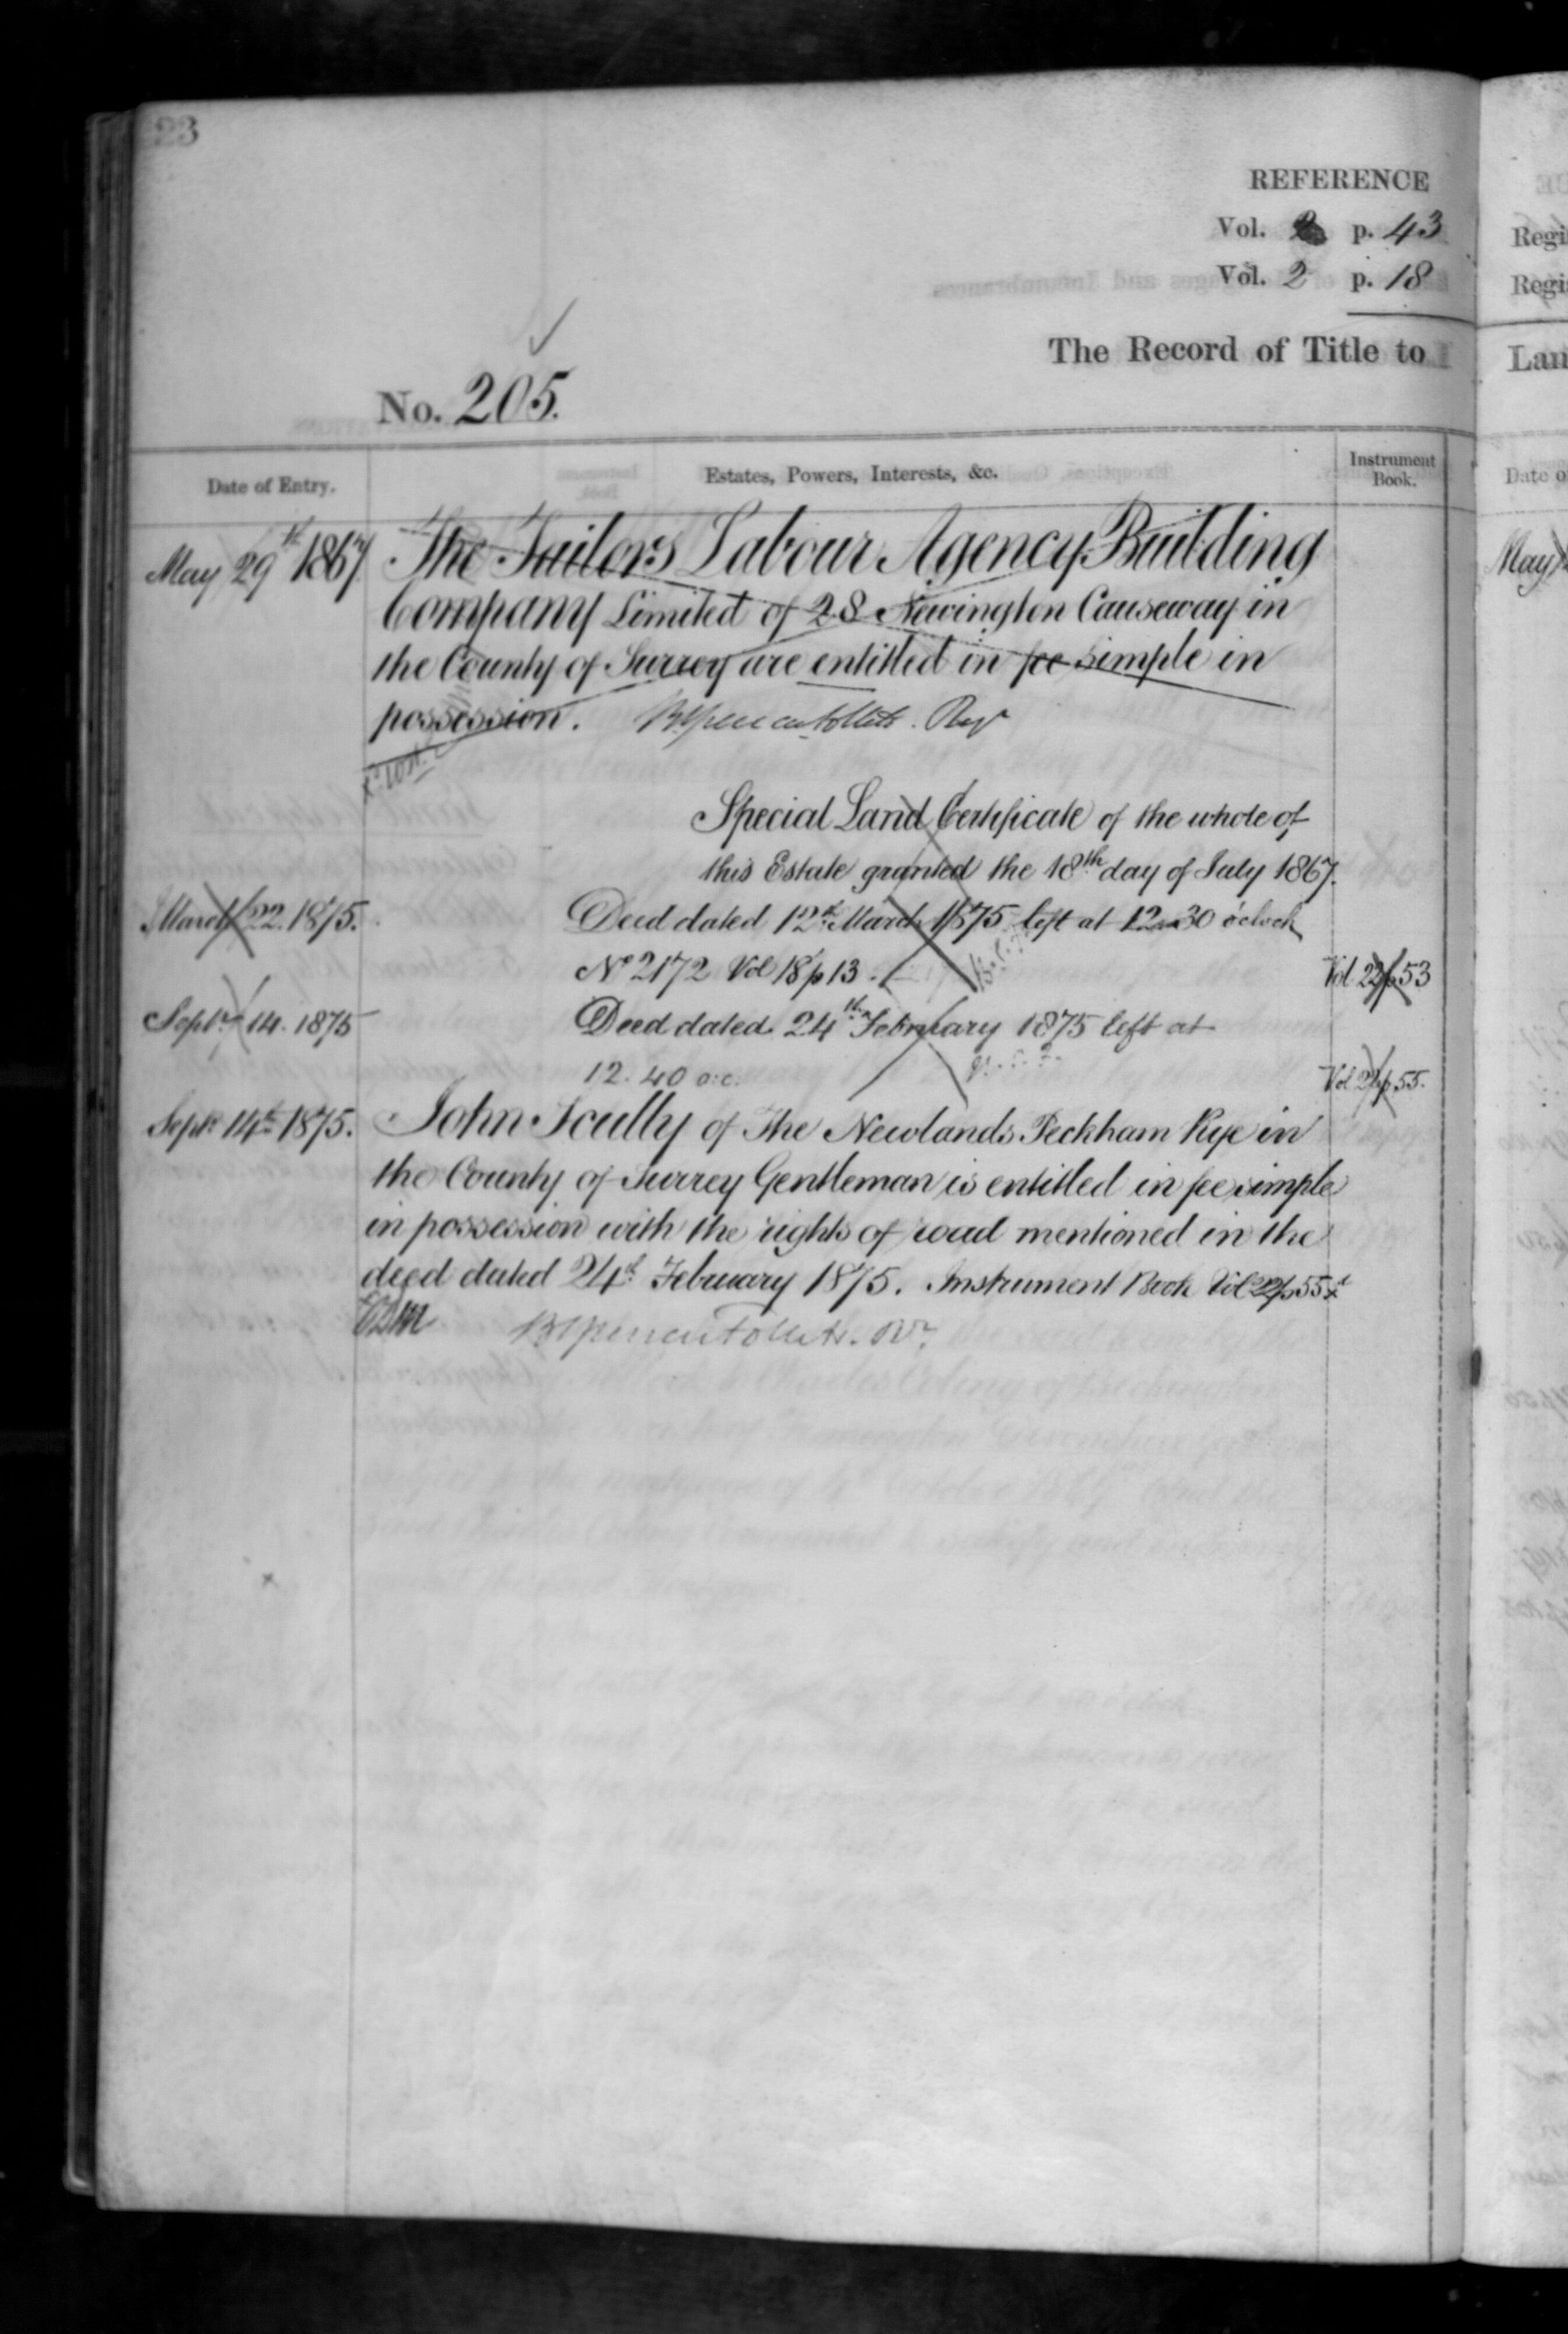 23
REFERENCE
Vol. p. 43
Vol. 2 p. 18
The Record of Title to
No. 205.
Date of Entry. Estates, Powers, Interests, &c. Instrument Book.
May 29th 1867 The Tailors Labour Agency Building
Company Limited of 28 Newington Causeway in
the County of Surrey are entitled in fee simple in
possession.
Special Land Certificate of the whole of
this Estate granted the 18th day of July 1867.
March 22. 1875. Deed dated 12th March 1875 left at 12.30 o'clock
No 2172 Vol 18 p 13. Vol 22 p 53
Septr 14. 1875 Deed dated 24th February 1875 left at
12.40 o.c. Vol 22 p 55.
Septr 14th 1875. John Scully of The Newlands Peckham Rye in
the County of Surrey Gentleman is entitled in fee simple
in possession with the rights of road mentioned in the
deed dated 24th February 1875. Instrument Book Vol 22 p 55
Regi
Regis
Lan
Date o
May